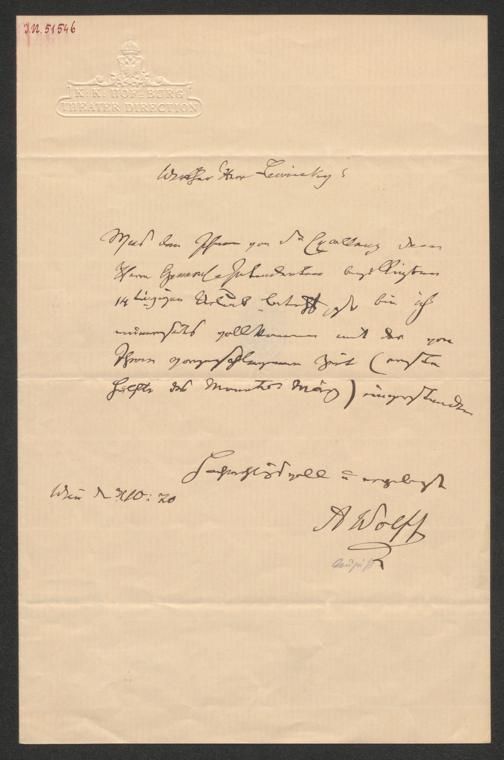 J.N. 51546
K. K. HOF-BURG
THEATER DIRECTION
Werther Herr Lewinsky!
Was den Ihnen von Sr Excellenz dem
Herrn General-Intendanten bewilligten
14 tägigen Urlaub betrifft, so bin ich
meinerseits vollkommen mit der von
Ihnen vorgeschlagenen Zeit (erste
Hälfte des Monates März) einverstanden
Hochachtungsvoll u ergebenst
Wien
A Wolff